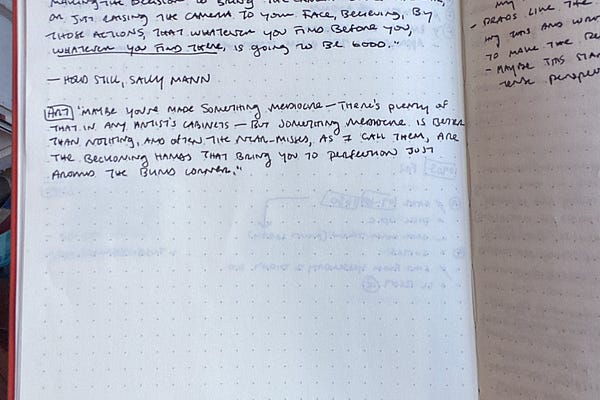 MAKING THE DECISION TO BRING THE
OR JUST RAISING THE CAMERA TO YOUR FACE, BELIEVING, BY
THOSE ACTIONS, THAT WHATEVER YOU FIND BEFORE YOU,
WHATEVER YOU FIND THERE, IS GOING TO BE GOOD."
— HOLD STILL, SALLY MANN
ART "MAYBE YOU'VE MADE SOMETHING MEDIOCRE — THERE'S PLENTY OF
THAT IN ANY ARTIST'S CABINETS — BUT SOMETHING MEDIOCRE IS BETTER
THAN NOTHING, AND OFTEN THE NEAR-MISSES, AS I CALL THEM, ARE
THE BECKONING HANDS THAT BRING YOU TO PERFECTION JUST
AROUND THE BLIND CORNER."
MY
- READS LIKE THE
MY
TO MAKE THE
- MAYBE THIS